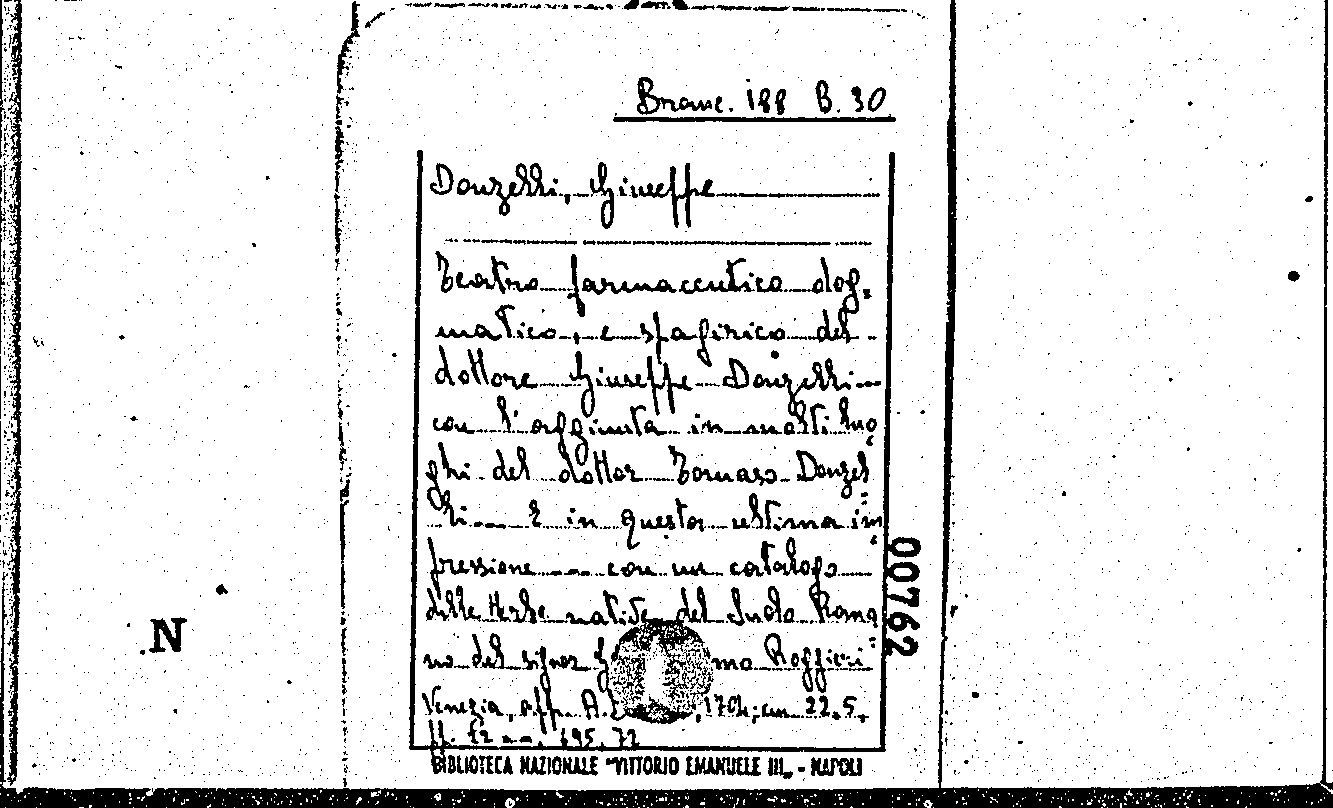 Branc. 188 B. 30
Donzelli, Giuseppe
Teatro farmaceutico dog=
matico, e spagirico del
dottore Giuseppe Donzelli...
con l'aggiunta in molti luo=
ghi del dottor Tomaso Donzel=
li... E in questa ultima im=
pressione... con un catalogo
delle Herbe native del Suolo Roma=
no del signor G mo Roggieri
Venezia, app. A. , 1704; cm. 22.5,
pp. 12 nn, 695, 72
BIBLIOTECA NAZIONALE "VITTORIO EMANUELE III" - NAPOLI
00762
N